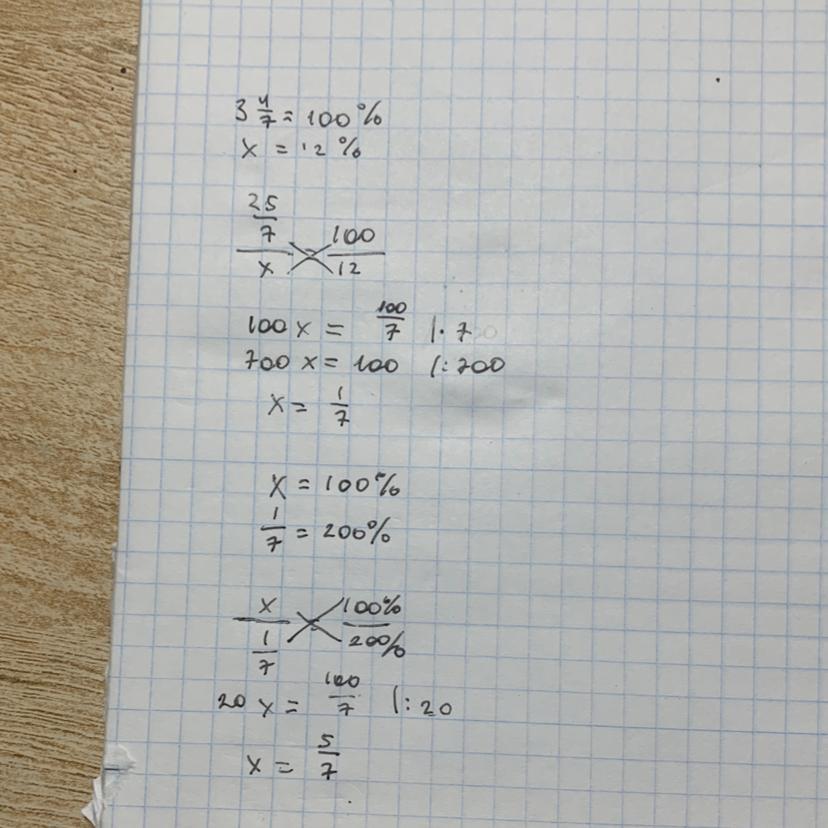 3 4/7 = 100%
x = 12%
25/7 / x = 100 / 12
100 x = 100/7 |· 7
700 x = 100 |: 700
x = 1/7
x = 100%
1/7 = 200%
x / 1/7 = 100% / 200%
20 x = 100/7 |: 20
x = 5/7